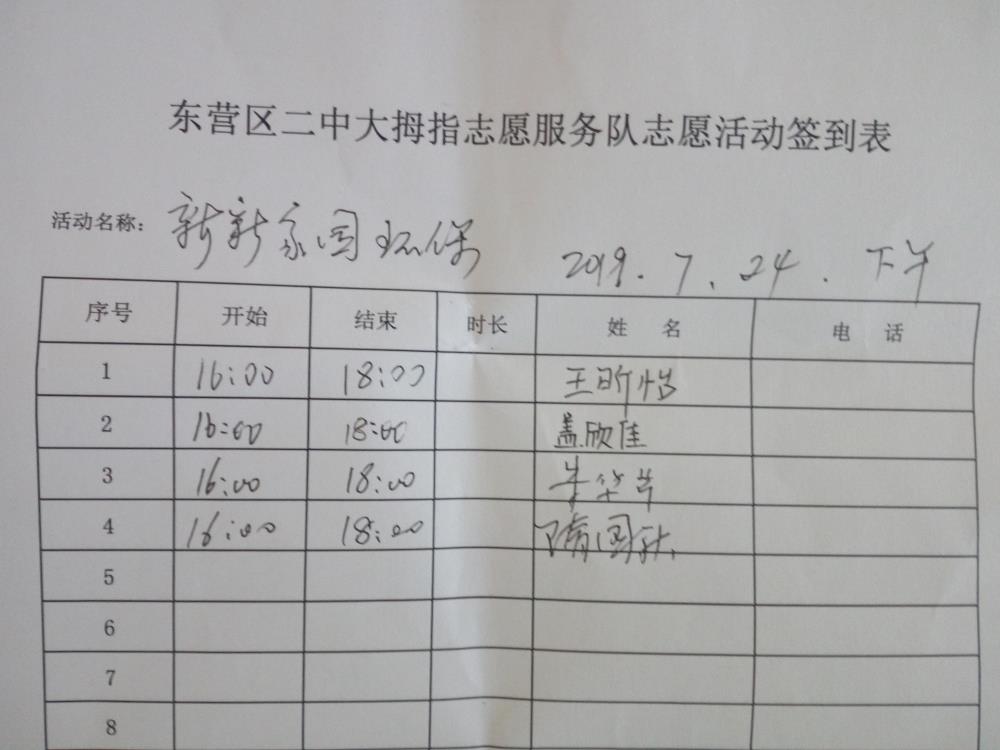 东营区二中大拇指志愿服务队志愿活动签到表
活动名称: 新新家园环保 2019.7.24.下午
序号 开始 结束 时长 姓名 电话
1 16:00 18:00 王昕怡
2 16:00 18:00 盖欣佳
3 16:00 18:00 朱华芳
4 16:00 18:00 隋国秋
5
6
7
8